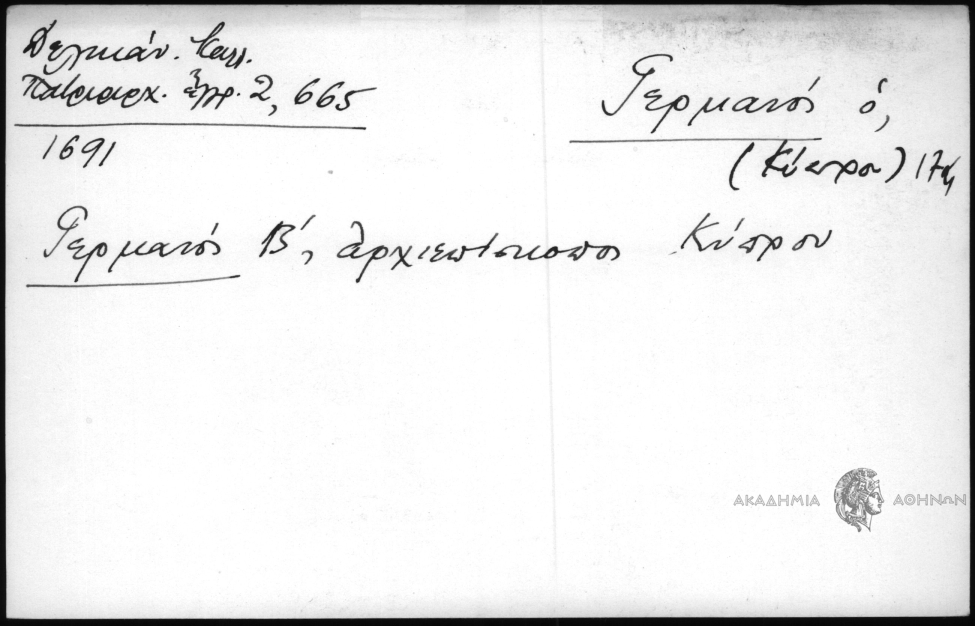 Δελικάν. Καλλ.
Πατριαρχ. ἔγγρ. 2, 665
1691
Γερμανός ὁ,
(Κύπρου) 17ος
Γερμανός Β', ἀρχιεπίσκοπος Κύπρου
ΑΚΑΔΗΜΙΑ ΑΘΗΝΩΝ